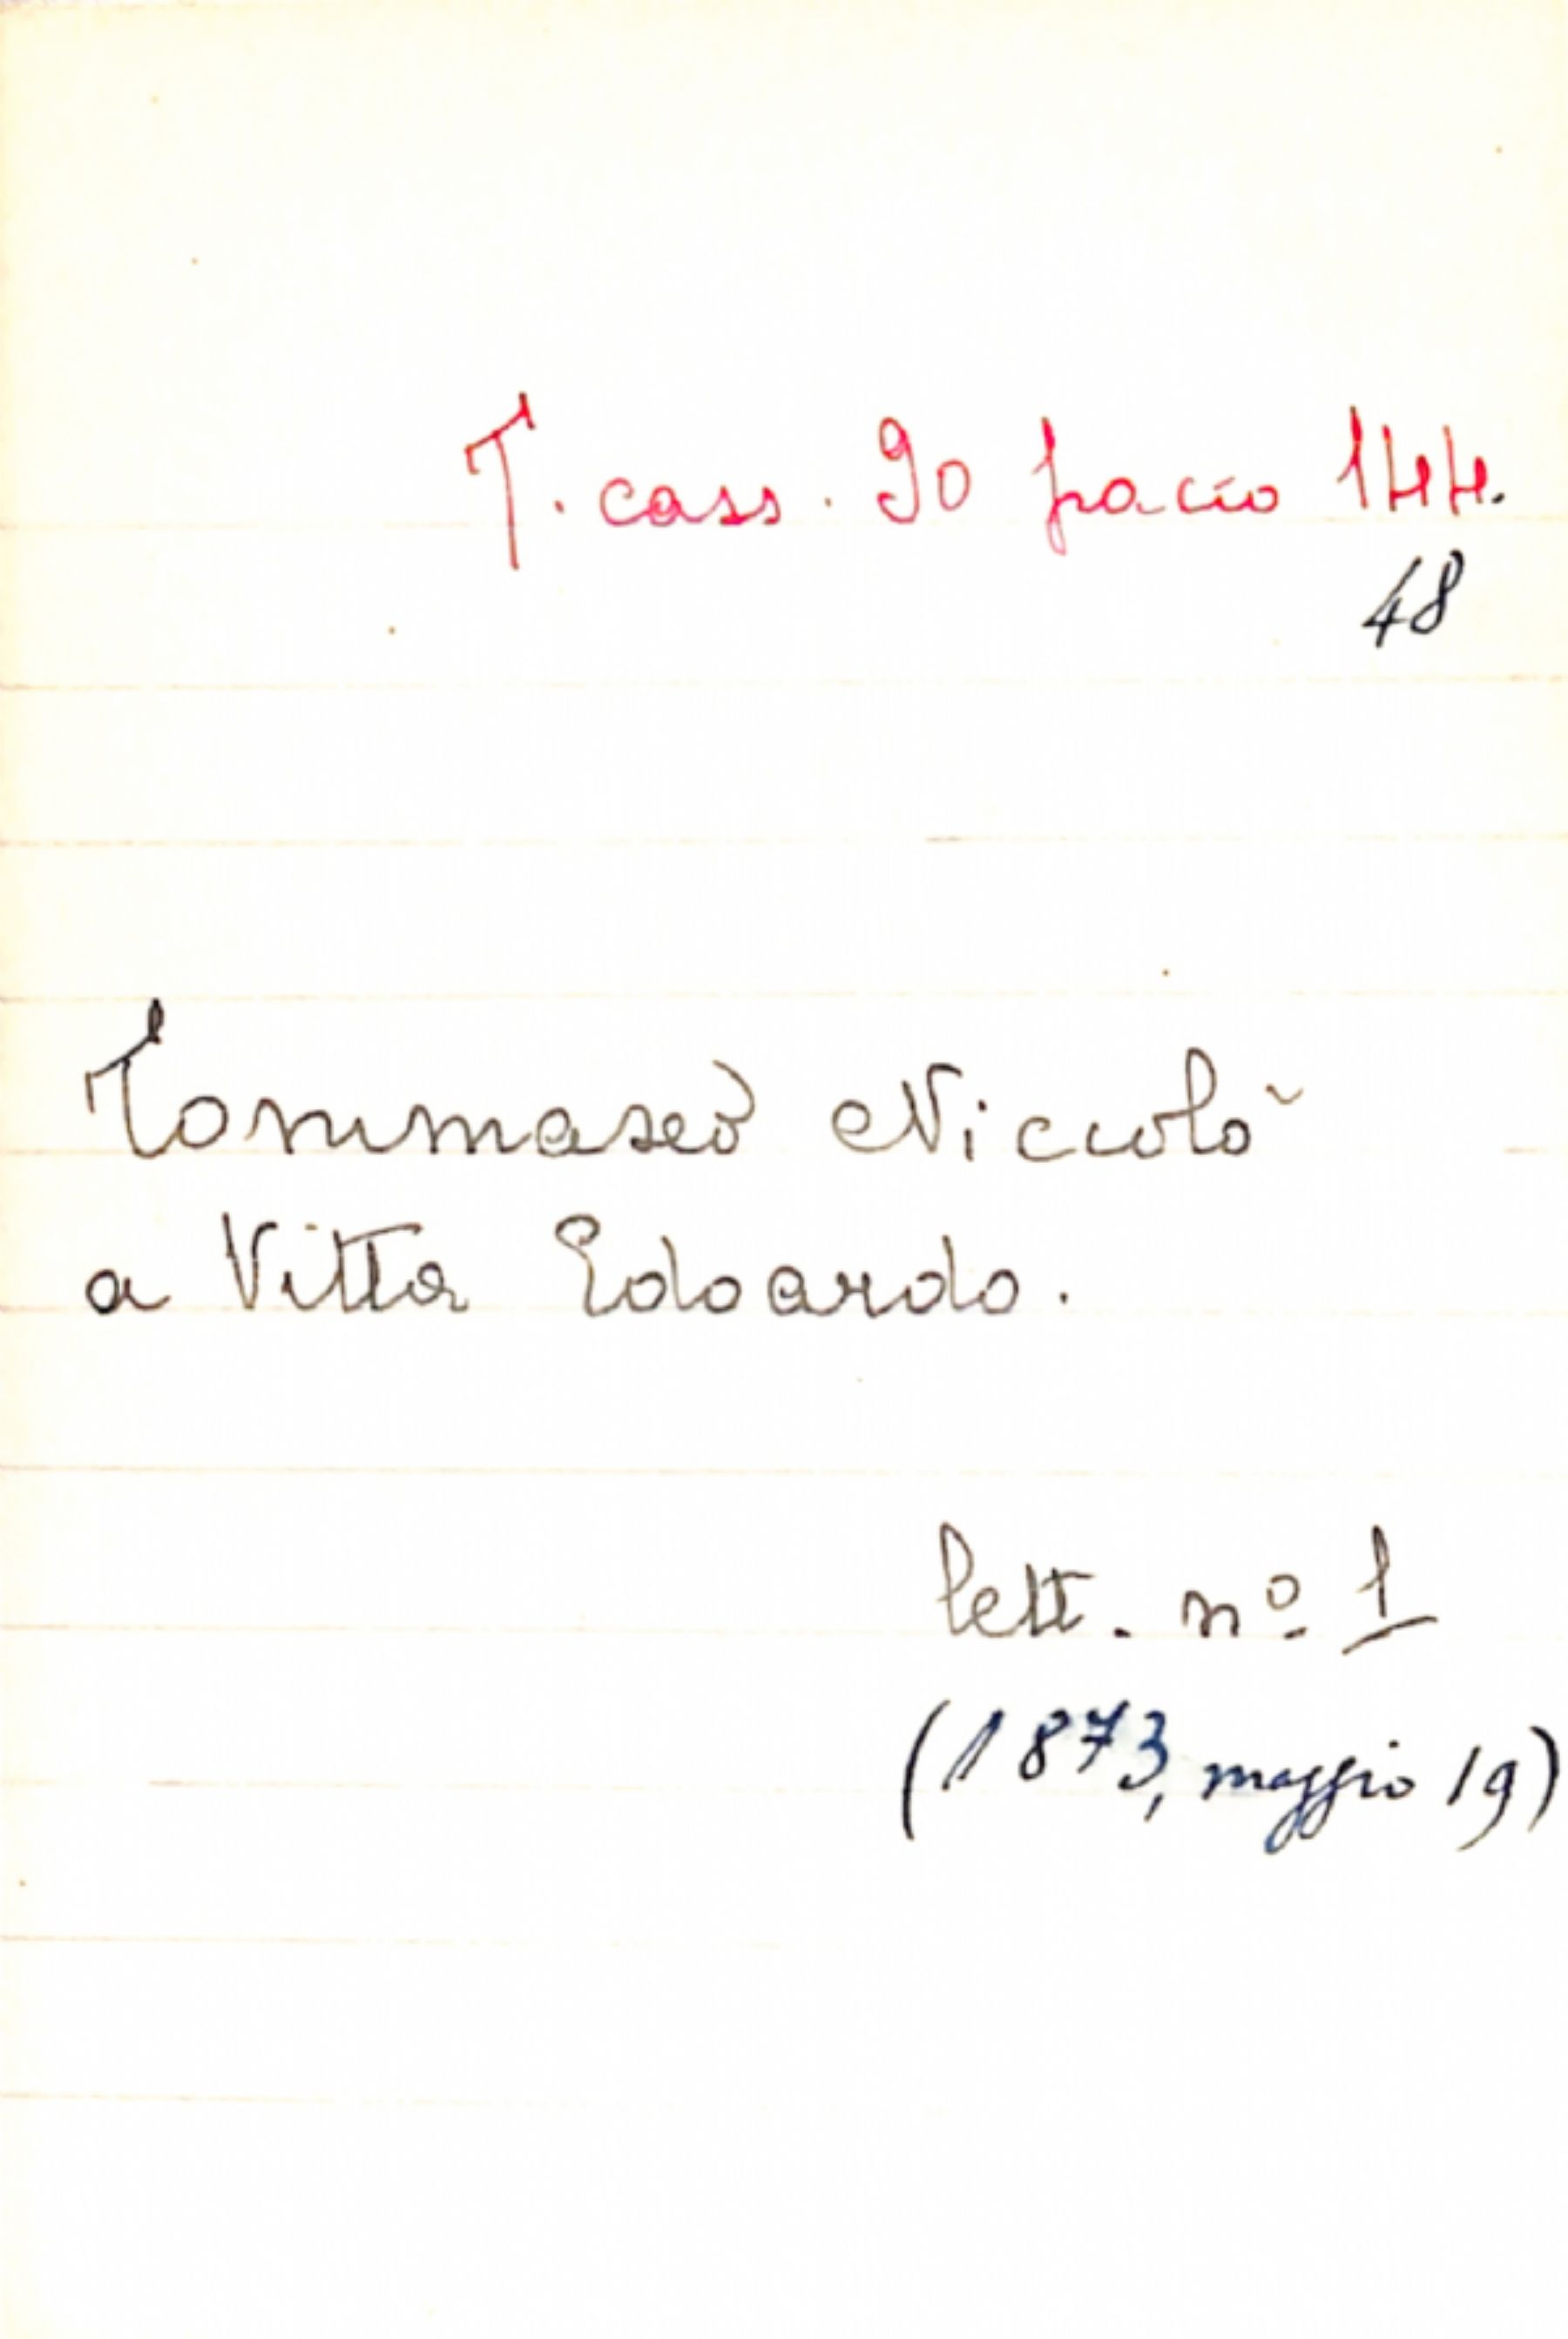 T. cass. 90 pacco 144.
48
Tommaseò Niccolò
a Vitta Edoardo.
lett. nº 1
(1873, maggio 19)